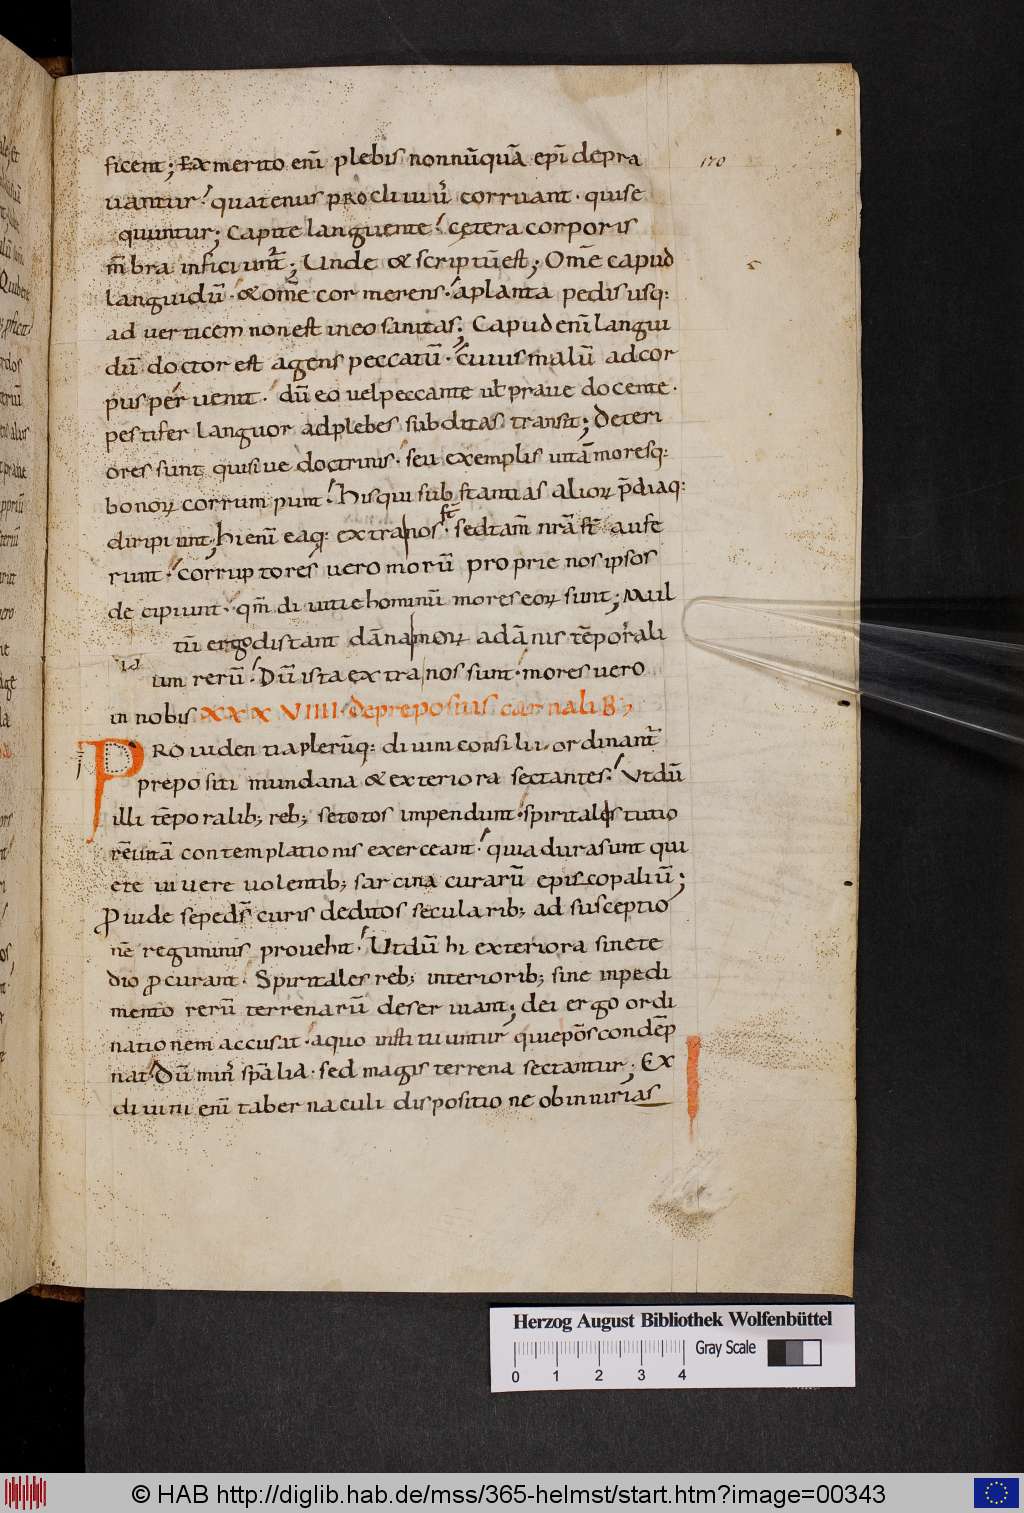 ficent; Ex merito enī plebis nonnūquā epī depra
uantur. quatenus procliuiu᷒ corruant. qui se
quuntur; Capite languente. cetera corporis
m̄bra inficiunt᷒; Unde & scriptū est; Om̄e capud
languidū. & om̄e cor merens. a planta pedis usq:
ad uerticem non est in eo sanitas; Capud enī langui
dū doctor est agens peccatū. cuius malū ad cor
pus peruenit. dū eo uel peccante ut praue docente.
pestifer languor ad plebes subditas transit; Deteri
ores sunt qui siue doctrinis. seu exemplis uitā moresq:
bonoꝝ corrumpunt. His qui substantias alioꝝ p̄diaq:
diripiunt; hi enī eaq: extra nos st̄. sed tam̄ nr̄a st̄ aufe
runt. corruptores uero morū proprie nos ipsos
decipiunt. qm̄ diuitie hominū mores eoꝝ sunt; Mul
tū ergo distant dāna moꝝ a dānis tēporali
um rerū. Dū ista extra nos sunt. mores uero
in nobis XXXVIIII. de prepositis carnalib;
PRouidentia plerūq: diuini consilii. ordinant᷒
prepositi mundana & exteriora sectantes. Vt dū
illi tēporalib; reb; se totos impendunt. spiritales tutio
rē uitā contemplationis exerceant. quia dura sunt qui
ete uiuere uolentib; sarcina curarū episcopaliū;
Ꝓiude sepe ds̄ curis deditos secularib; ad susceptio
nē regiminis prouehit. Ut dū hi exteriora sine te
dio ꝓcurant. Spiritales reb; interiorib; sine inpedi
mento rerū terrenarū deseruiant; dei ergo ordi
nationem accusat. a quo instituuntur qui epōs condēp
nat. Dū min᷒ sp̄alia. sed magis terrena sectantur; Ex
diuini enī tabernaculi dispositione ob innirias
170
Herzog August Bibliothek Wolfenbüttel
Gray Scale
0 1 2 3 4
© HAB http://diglib.hab.de/mss/365-helmst/start.htm?image=00343